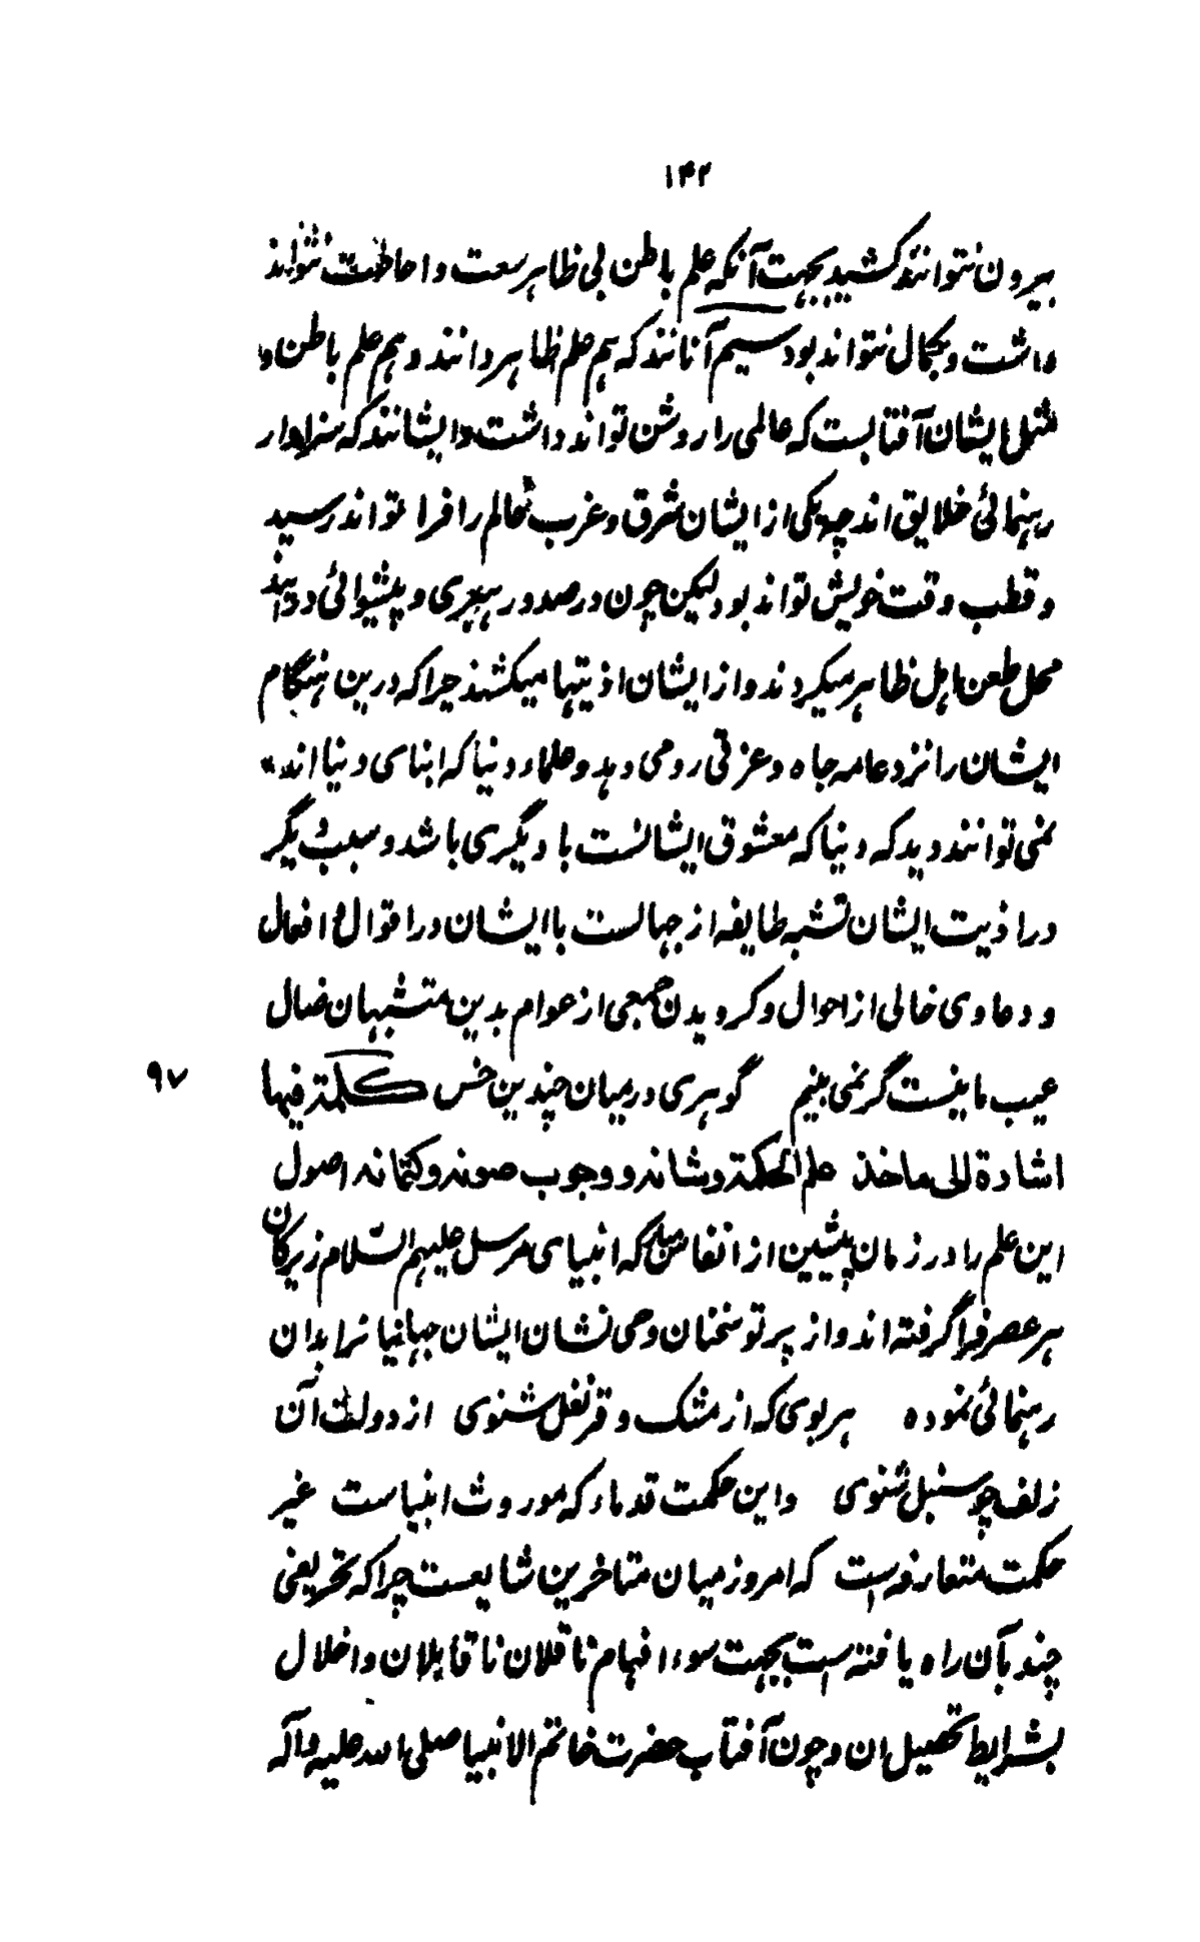 ۱۴۲
بیرون نتوانند کشید بجهت آنکه علم باطن بی ظاهر سعت و احاطت نتواند
داشت و بکمال نتواند بود سیم آنانند که هم علم ظاهر دانند و هم علم باطن و
مثل ایشان آفتابست که عالمی را روشن تواند داشت و ایشانند که سزاوار
رهنمائی خلایق اند چه یکی از ایشان شرق و غرب عالم را فرا تواند رسید
و قطب وقت خویش تواند بود لیکن چون در صدد رهبری و پیشوائی در آیند
محل طعن اهل ظاهر میکردند و از ایشان اذیتها میکشند چرا که درین هنگام
ایشان را نزد عامه جاه و عزتی رو می دهد و علماء دنیا که ابنای دنیا اند
نمی توانند دید که دنیا که معشوق ایشانست با دیگری باشد و سبب دیگر
در اذیت ایشان تشبه طایفه از جهالست با ایشان در اقوال و افعال
و دعاوی خالی از احوال و کرویدن جمعی از عوام بدین متشبهان ضال
عیب ما نیست گر نمی بینیم گوهری در میان چندین خس کلمة فیها ۹۷
اشادة الی ماخذ علم الحکمة و شانه و وجوب صونه و کتمانه اصول
این علم را در زمان پیشین از انفاس متبرکه انبیای مرسل علیهم السلام زیرکان
هر عصر فرا گرفته اند و از پرتو سخنان وحی نشان ایشان جهانیانرا بدان
رهنمائی نموده هر بوی که از مشک و قرنفل شنوی از دولت آن
زلف چو سنبل شنوی و این حکمت قدماء که موروث انبیاست غیر
حکمت متعارفه است که امروز میان متاخرین شایعست چرا که تحریفی
چند بآن راه یافته است بجهت سوء افهام ناقلان ناقابلان و اخلال
بشرایط تحصیل ان و چون آفتاب حضرت خاتم الانبیا صلی الله علیه و آله